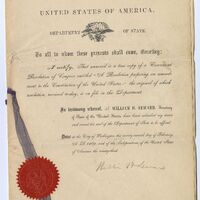 UNITED STATES OF AMERICA,
DEPARTMENT OF STATE.
To all to whom these presents shall come, Greeting:
I certify, That annexed is a true copy of a Concurrent
Resolution of Congress entitled "A Resolution proposing an amend-
ment to the Constitution of the United States" the original of which
resolution, received to-day, is on file in this Department.
In testimony whereof, I, WILLIAM H. SEWARD, Secretary
of State of the United States, have hereunto subscribed my name
and caused the seal of the Department of State to be affixed.
Done at the City of Washington, this day of February
A.D. 1869, and of the Independence of the United States
of America the ninety-third.
William H. Seward